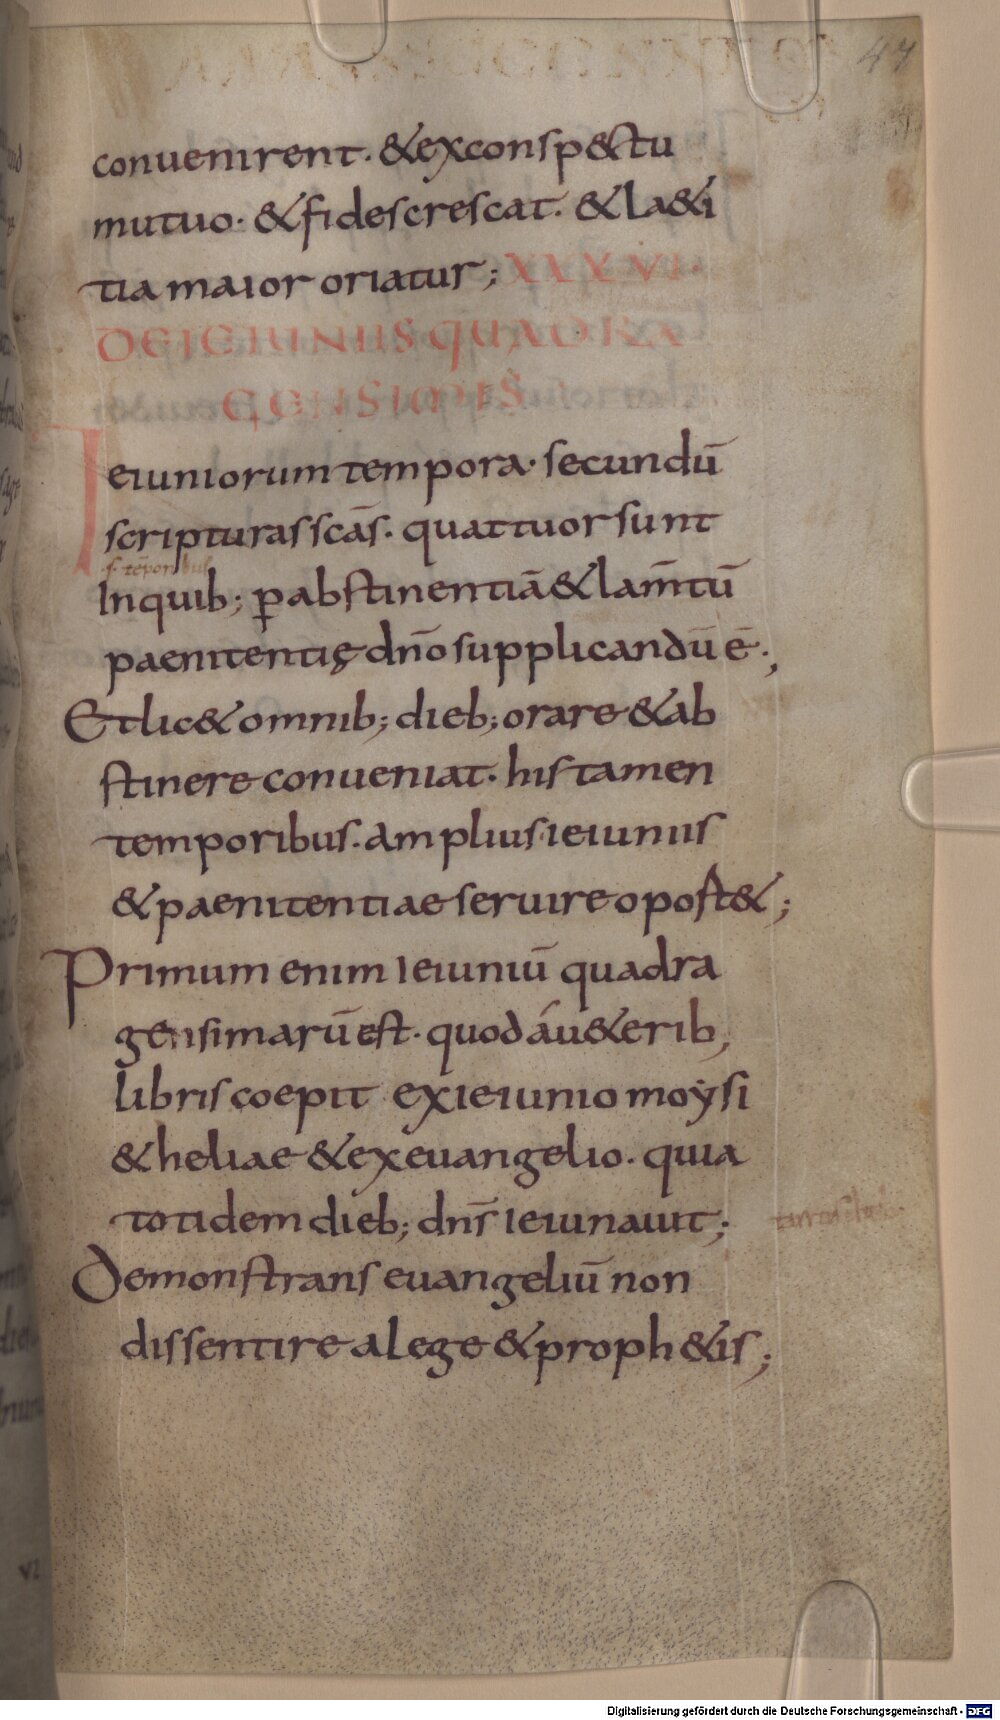 47
conuenirent. &exconsp&ctu
mutuo. &fidescrescat. &la&i
tia maior oriatur; XXXVI.
DEIEIUNIIS QUADRA
GENSIMIS
Ieiuniorum tempora. secundū
scripturas scās. quattuor sunt
.s. tēporibus
Inquib; ꝑabstinentiā & lam̄tū
paenitentię dn̄o supplicandū ē.;
Etlic& omnib; dieb; orare & ab
stinere conueniat. his tamen
temporibus. amplius ieiuniis
& paenitentiae seruire oport&;
Primum enim Ieiuniū quadra
gensimarū est. quod áu&erib;
libris coepit ex ieiunio moẏsi
& heliae & ex euangelio. quia
totidem dieb; dn̄s Ieiunauit;
Demonstrans euangeliū non
dissentire a lege & proph&is;
Digitalisierung gefördert durch die Deutsche Forschungsgemeinschaft - DFG